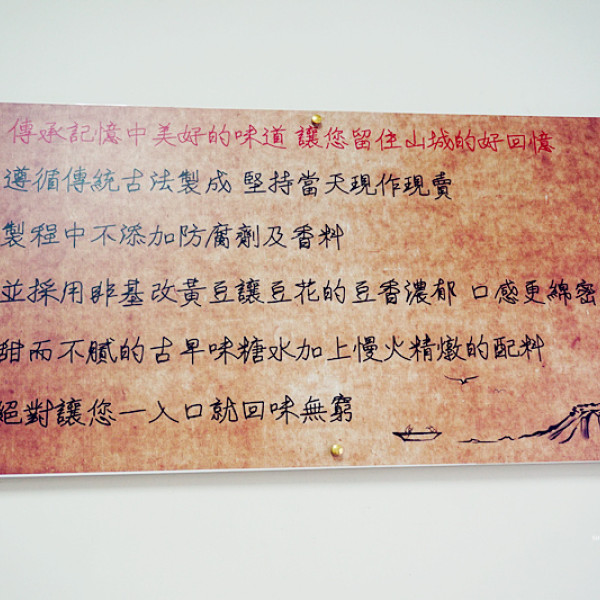 傳承記憶中美好的味道 讓您留住山城的好回憶
遵循傳統古法製成 堅持當天現作現賣
製程中不添加防腐劑及香料
並採用非基改黃豆讓豆花的豆香濃郁 口感更綿密
甜而不膩的古早味糖水加上慢火精燉的配料
絕對讓您一入口就回味無窮